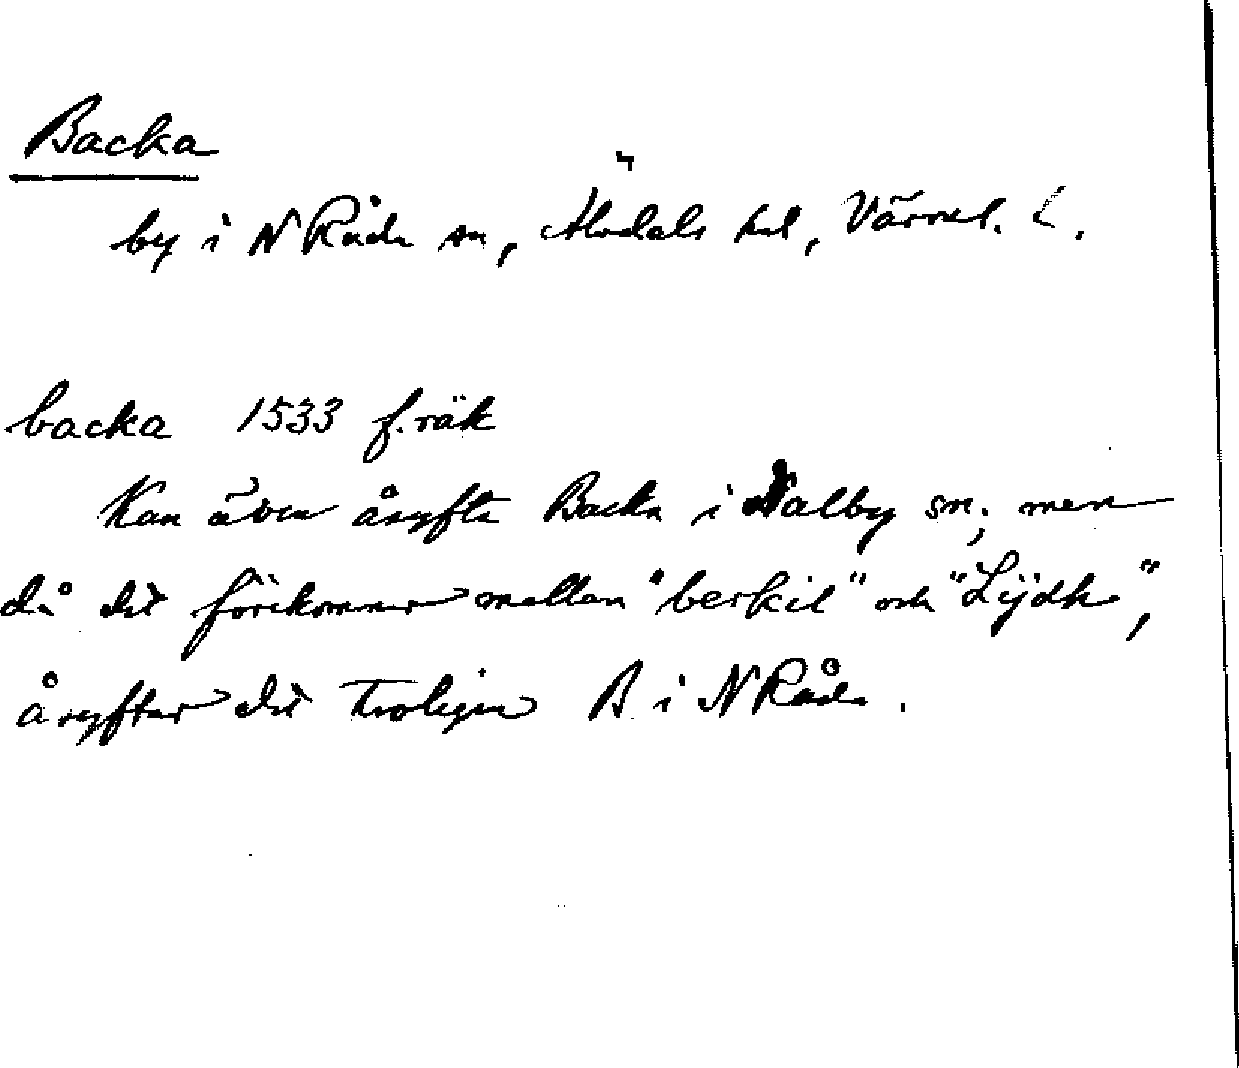 Backa
by i N Råda sn, Älvdals hd, Värml. L.
backa 1533 f.räk
Kan även åsyfta Backa i Dalby sn; men
då det förekommer mellan "berkil" och "Lijdh",
åsyftar det troligen B i N Råda.